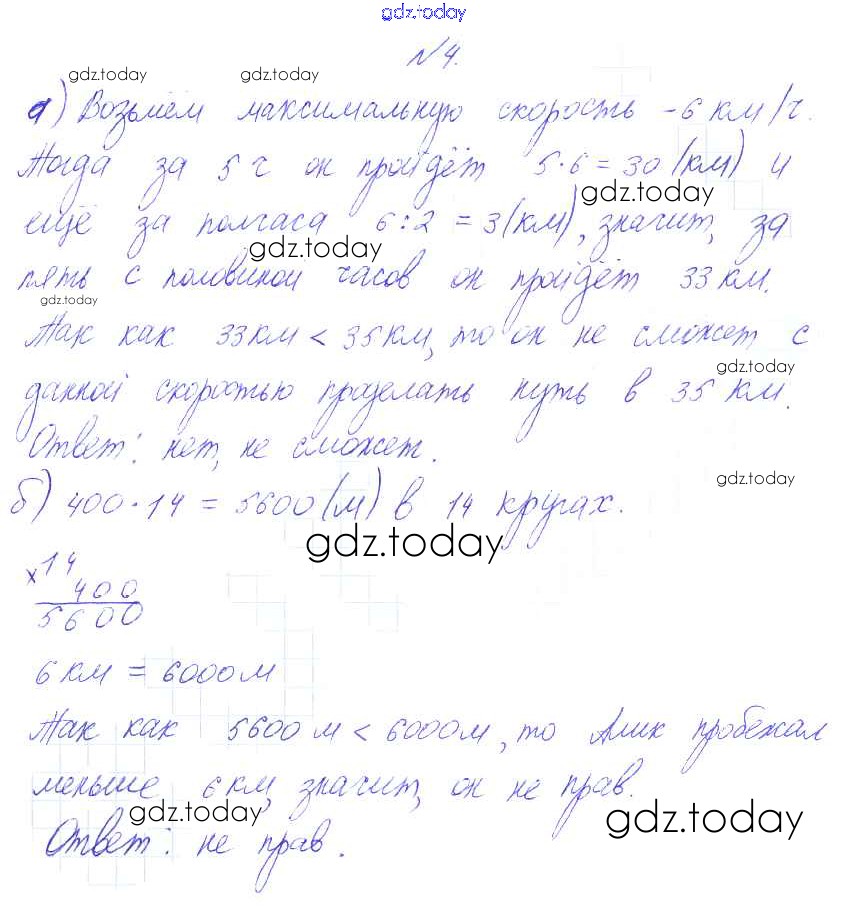 gdz.today
№4.
gdz.today gdz.today
а) Возьмём максимальную скорость - 6 км/ч.
Тогда за 5 ч он пройдёт 5·6 = 30 (км) и
gdz.today
ещё за полчаса 6:2 = 3 (км), значит, за
gdz.today
пять с половиной часов он пройдёт 33 км.
gdz.today
Так как 33 км < 35 км, то он не сможет с
gdz.today
данной скоростью проделать путь в 35 км.
Ответ: нет, не сможет.
gdz.today
б) 400·14 = 5600 (м) в 14 кругах.
gdz.today
×14
400
5600
6 км = 6000 м
Так как 5600 м < 6000 м, то Алик пробежал
меньше 6 км, значит, он не прав.
gdz.today gdz.today
Ответ: не прав.